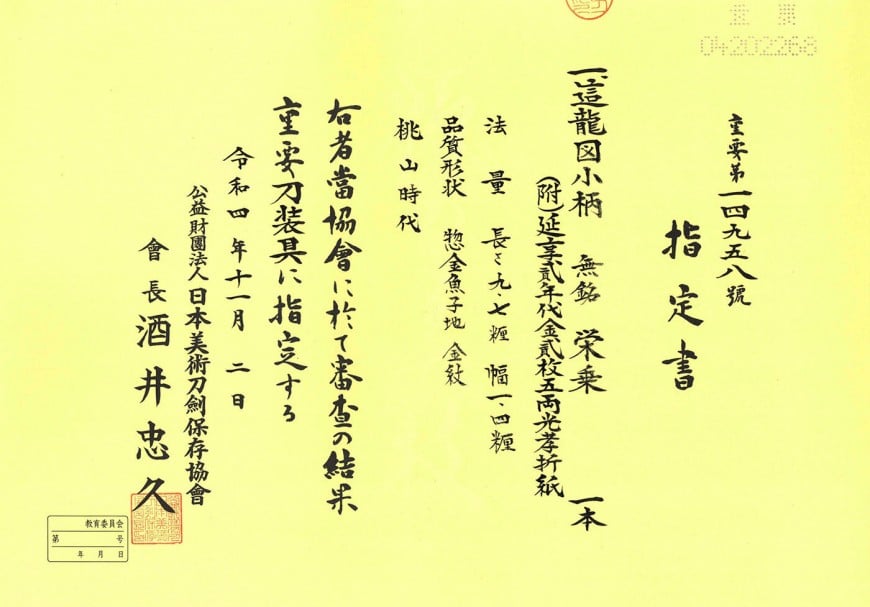 重要
04202268
重要第一四九五八號
指定書
一、這龍図小柄 無銘 栄乗 一本
(附)延享貳年代金貳枚五両光孝折紙
法量 長さ九・七糎 幅一・四糎
品質形状 惣金魚子地 金紋
桃山時代
右者當協會に於て審査の結果
重要刀装具に指定する
令和四年十一月二日
公益財團法人日本美術刀劍保存協會
會長 酒井忠久
教育委員会
第 号
年 月 日